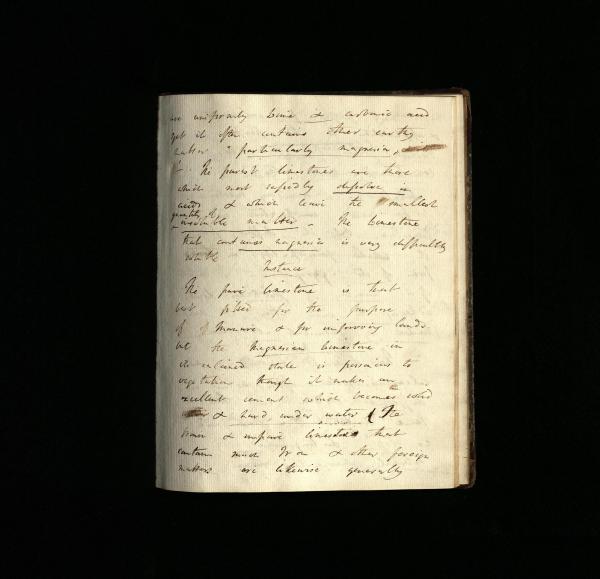 are uniformly lime & carbonic acid
yet it often contains other earthy
matter particularly magnesia,
The purest limestones are those
which most rapidly dissolve in
acids & which leave the smallest
quantity of
insoluble matter. The limestone
that contains magnesia is very difficultly
soluble
Instance
The pure limestone is that
best fitted for the purpose
of Manure & for improving lands
but the Magnesian limestone in
its calcined state is poisonous to
vegetation though it makes an
excellent cement which becomes
& hard under water The
& impure limestones that
contain much Iron & other foreign
matters are likewise generally